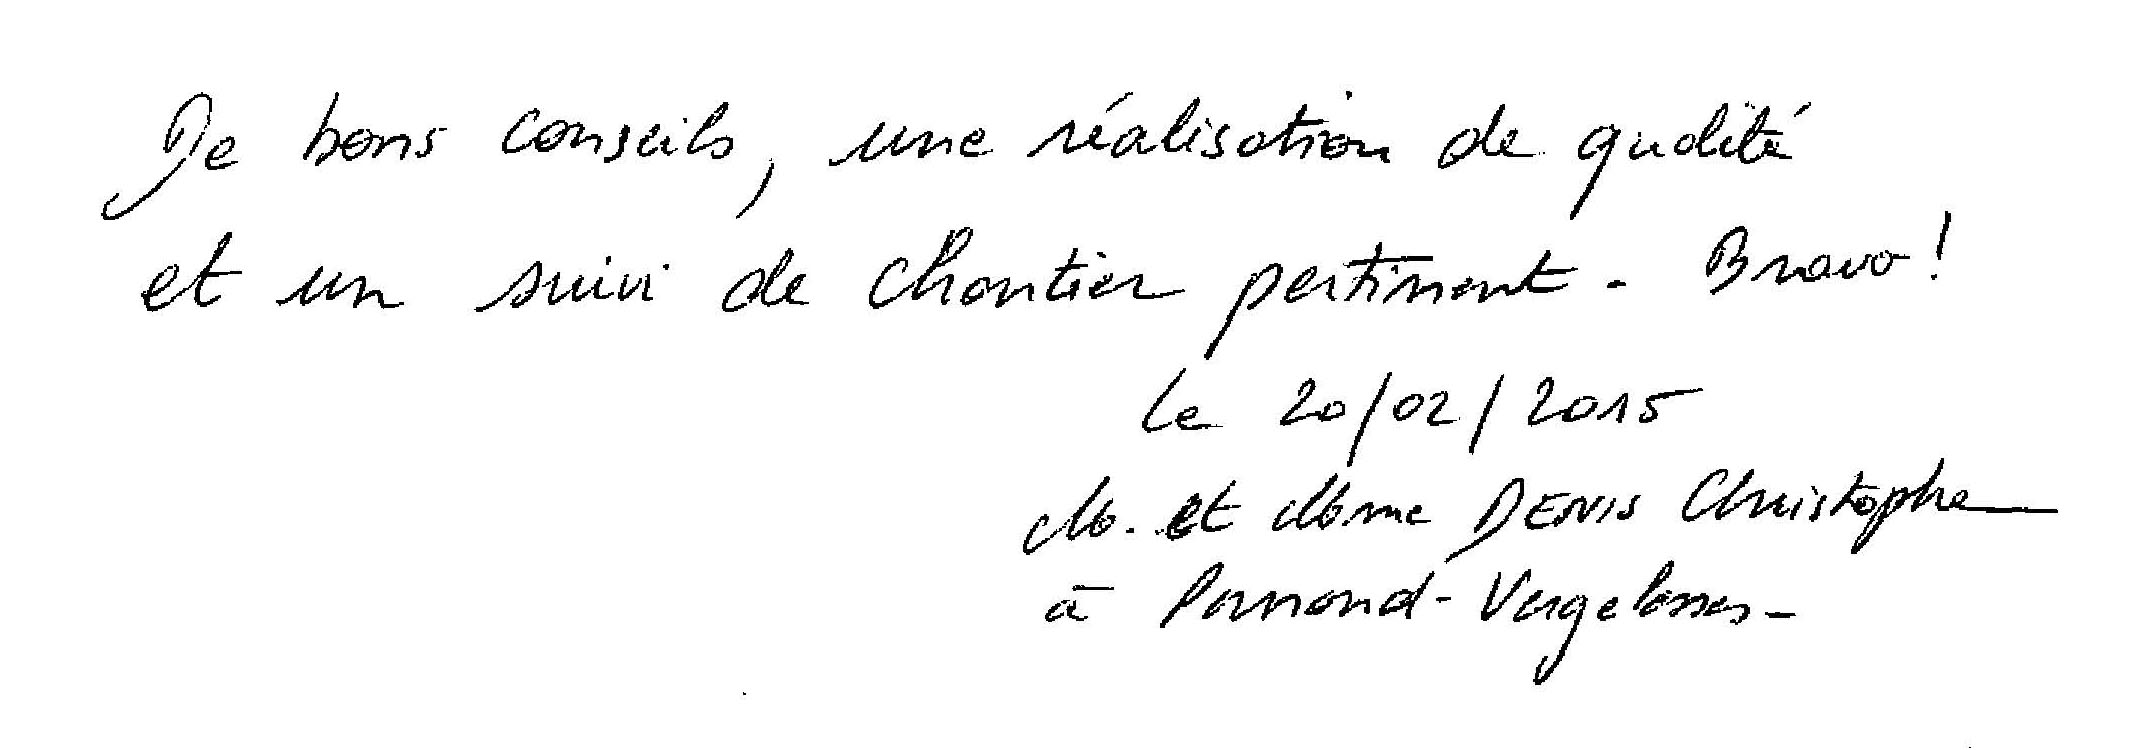 De bons conseils, une réalisation de qualité
et un suivi de chantier pertinent. Bravo!
le 20/02/2015
M. et Mme DENIS Christophe
à Pernand-Vergelesses.